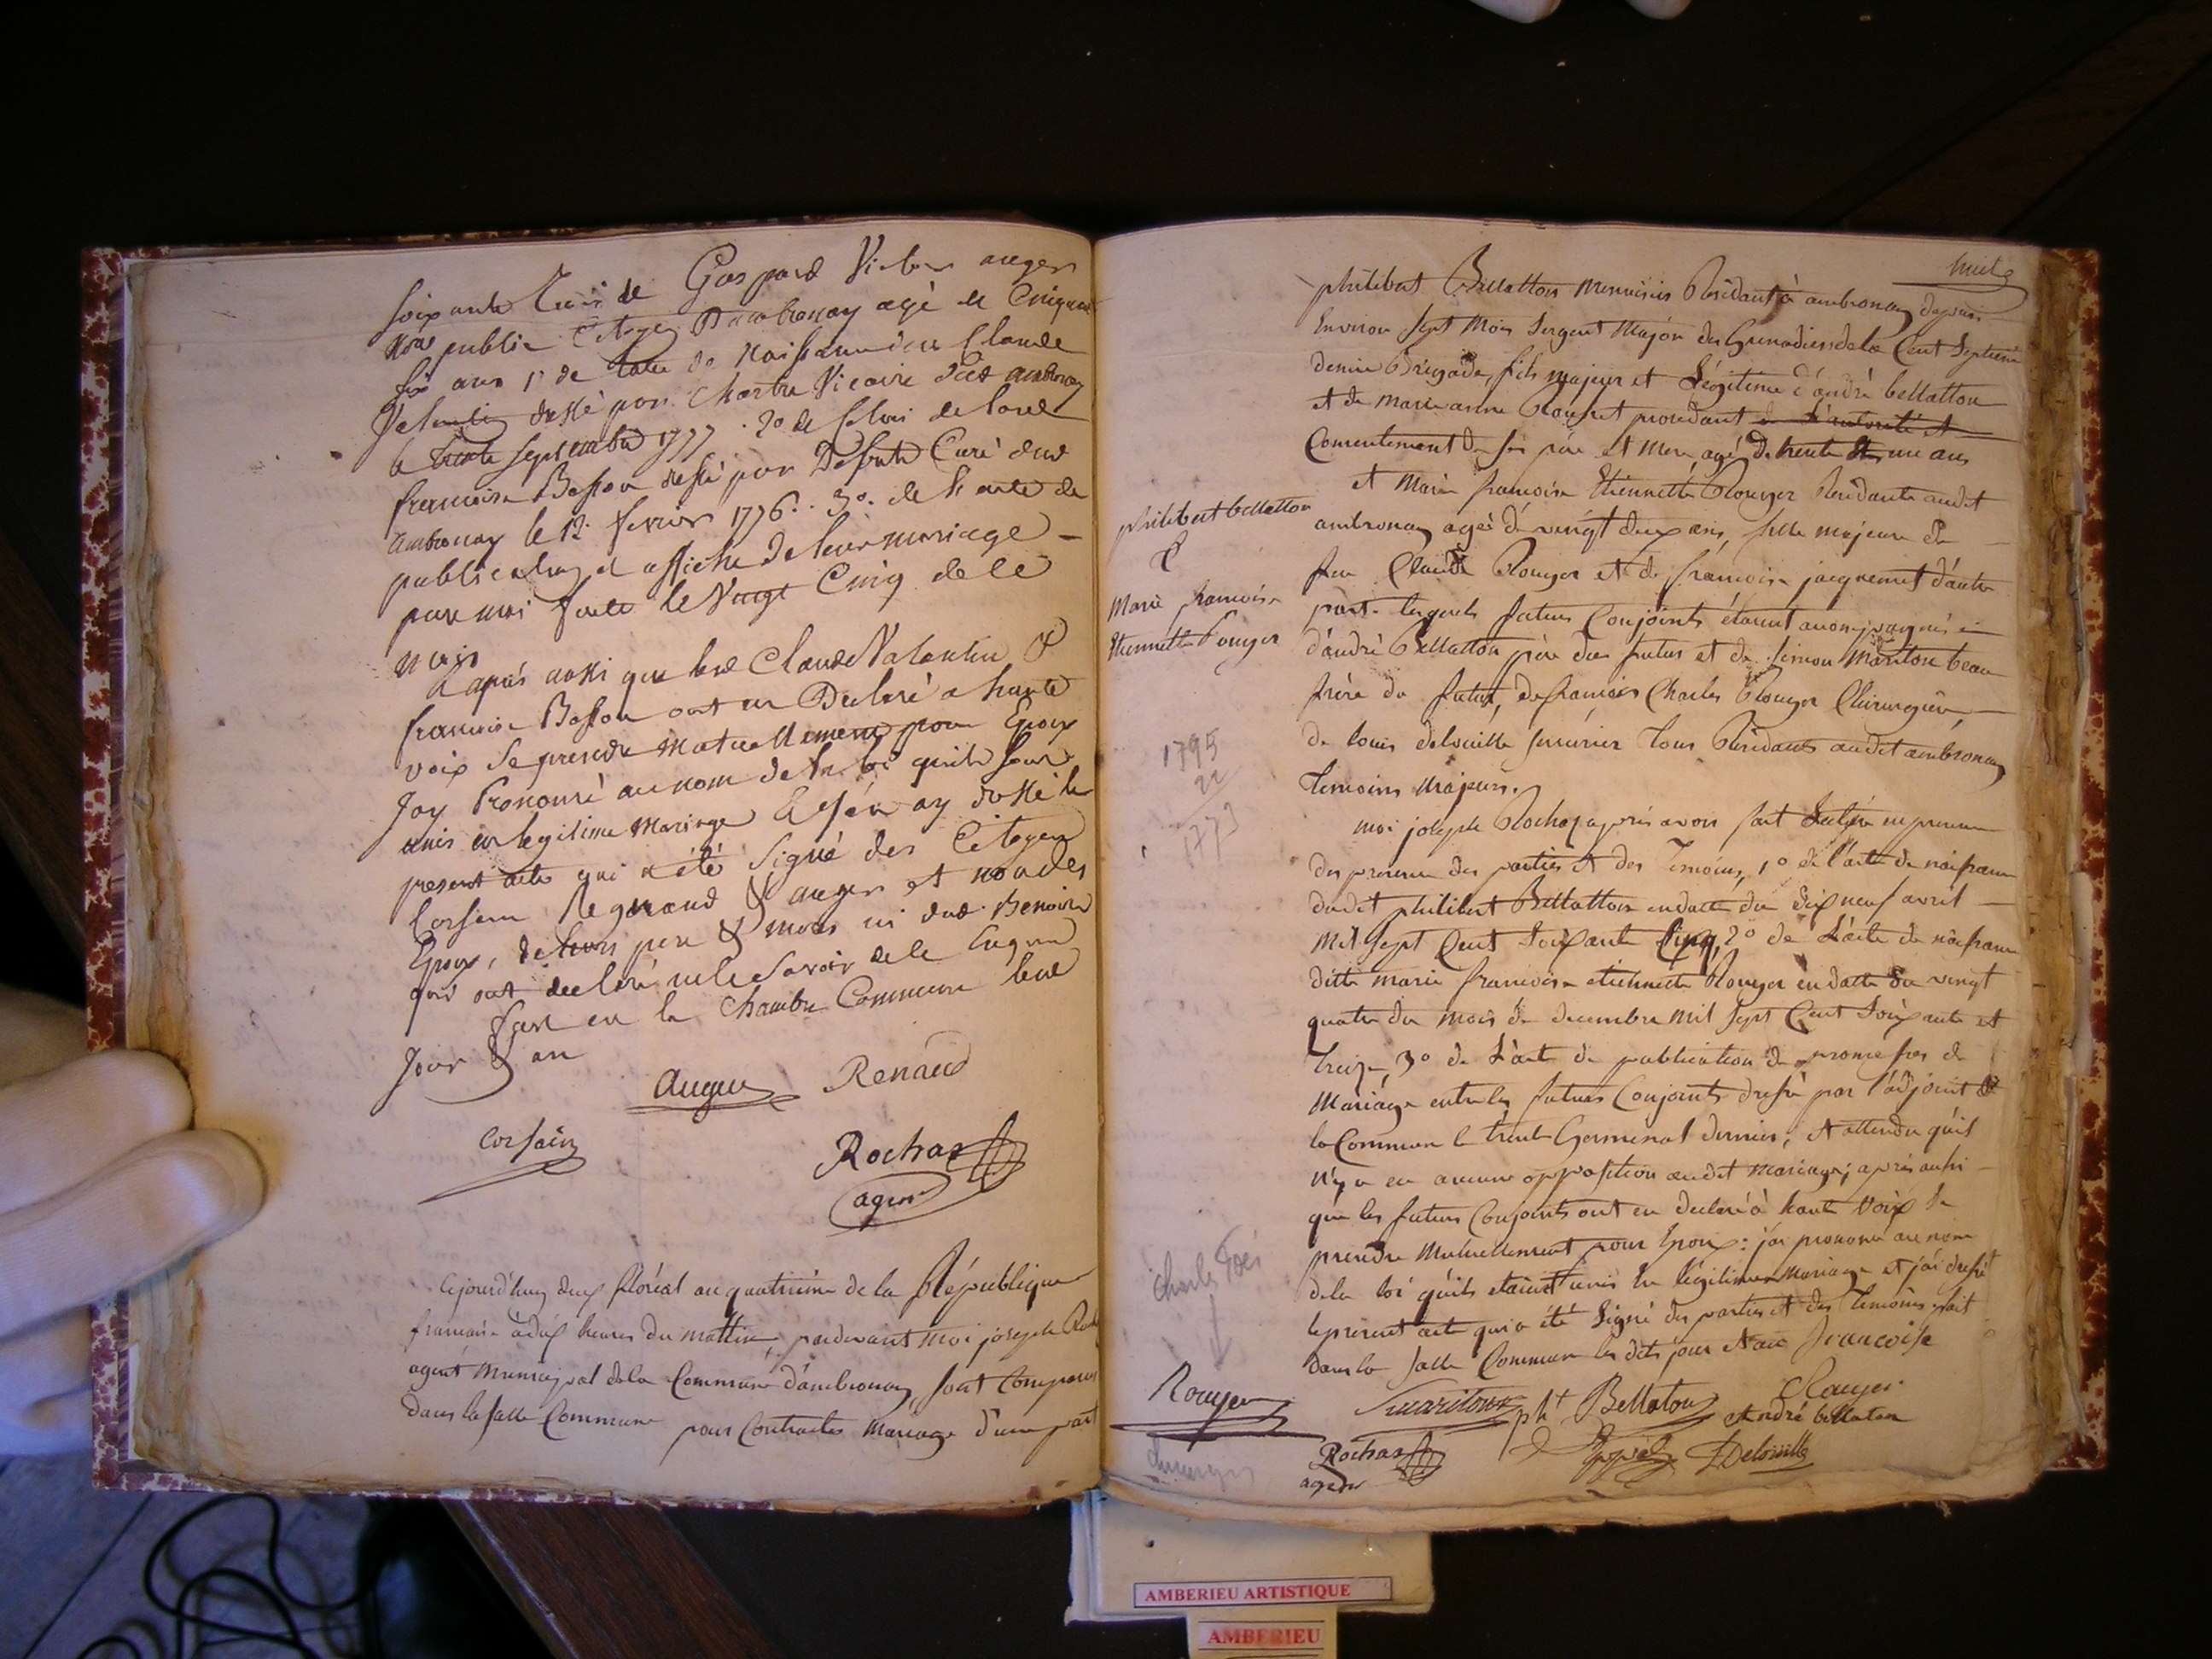 soixante trois de Gaspard Victor auger
nore public citoyen D'ambronay agé de Cinquante
six ans 1° de lacte de Naissance dud Claude
Valentin dressé par Chartre Vicaire dud ambronay
le trente septembre 1777. 2° de celui de lad
francoise Bosson dressé par Defunte Curé dud
ambronay le 12 fevrier 1776. 3° de l'acte de
publication et affiche de leur mariage
par moi faite le Vingt Cinq de ce
mois
après aussi que led Claude Valentin &
francoise Bosson ont eu Declaré a haute
voix se prendre mutuellement pour Epoux
Jay Prononcé au nom de la loi quils sont
unis en legitime Mariage Et j'en ay dressé le
present acte qui a été signé des Citoyens
Corsain Regnaud & auger et non des
Epoux, de leurs pere & mere ni dud Benoit
qui ont declaré ne le savoir de ce Enquis
fait en la Chambre Commune lesd
Jour & an
Auger Renaud
Corsain
Rochas
agent
Cejourd'huy deux floréal an quatrième de la République
francaise à dix heures du mattin, pardevant moi joseph Roch
agent municipal de la Commune d'ambronay sont Comparus
dans la salle Commune pour Contracter Mariage d'une part
huit
philibert Bellatton menuisier Résidant à ambronay depuis
Environ sept mois sergent Major des Grenadiers de la Cent septieme
demie Brigade, fils majeur et Légitime d'andré bellatton
et de marie anne Rousset procedant de l'autorité et
Consentement de ses père et mere, agé de trente un ans
et Marie francoise Etiennette Rouyer Residante audit
ambronay agée de vingt deux ans, fille majeure de
philibert bellatton
&
Marie francoise
Etiennette Rouyer
feu Claude Rouyer et de francoise jacquemet d'autre
part. lesquels futurs Conjoints étaient accompagnés
d'andré Bellatton père du futur et de simon Maritoux beau
frère du futur, de francois Charles Rouyer Chirurgien,
de louis deloville serrurier tous Résidants audit ambronay
temoins majeurs.
1795
22
1773
moi joseph Rochas après avoir fait lecture en presence
des parties et des Temoins, 1° de l'acte de naissance
dudit philibert Bellatton en datte du dix neuf avril
Mil sept Cent soixante Cinq, 2° de l'acte de naissance
ditte marie francoise etiennette Rouyer en datte du vingt
quatre du mois de decembre mil sept Cent soixante et
treize, 3° de l'acte de publication de promesses de
Mariage entre les futurs Conjoints dressé par l'adjoint de
la Commune le trente Germinal dernier, et attendu qu'il
n'y a eu aucune opposition audit mariage; après aussi
que les futurs Conjoints ont eu declaré à haute voix se
prendre mutuellement pour Epoux: j'ai prononcé au nom
de la loi qu'ils etaient unis En légitime Mariage et j'ai dressé
le present acte qui a été signé des parties et des temoins. fait
dans la salle Commune les dits jour et an
francoise
Rouyer
Rouyer Smaritoux pht Bellaton
andré bellaton
Rochas
agent
Deloville